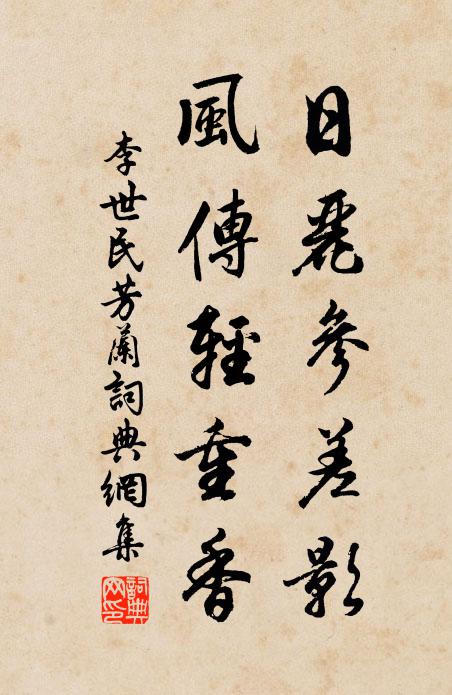 日麗參差影
風傳輕重香
李世民芳蘭詞典網集
詞典
网印